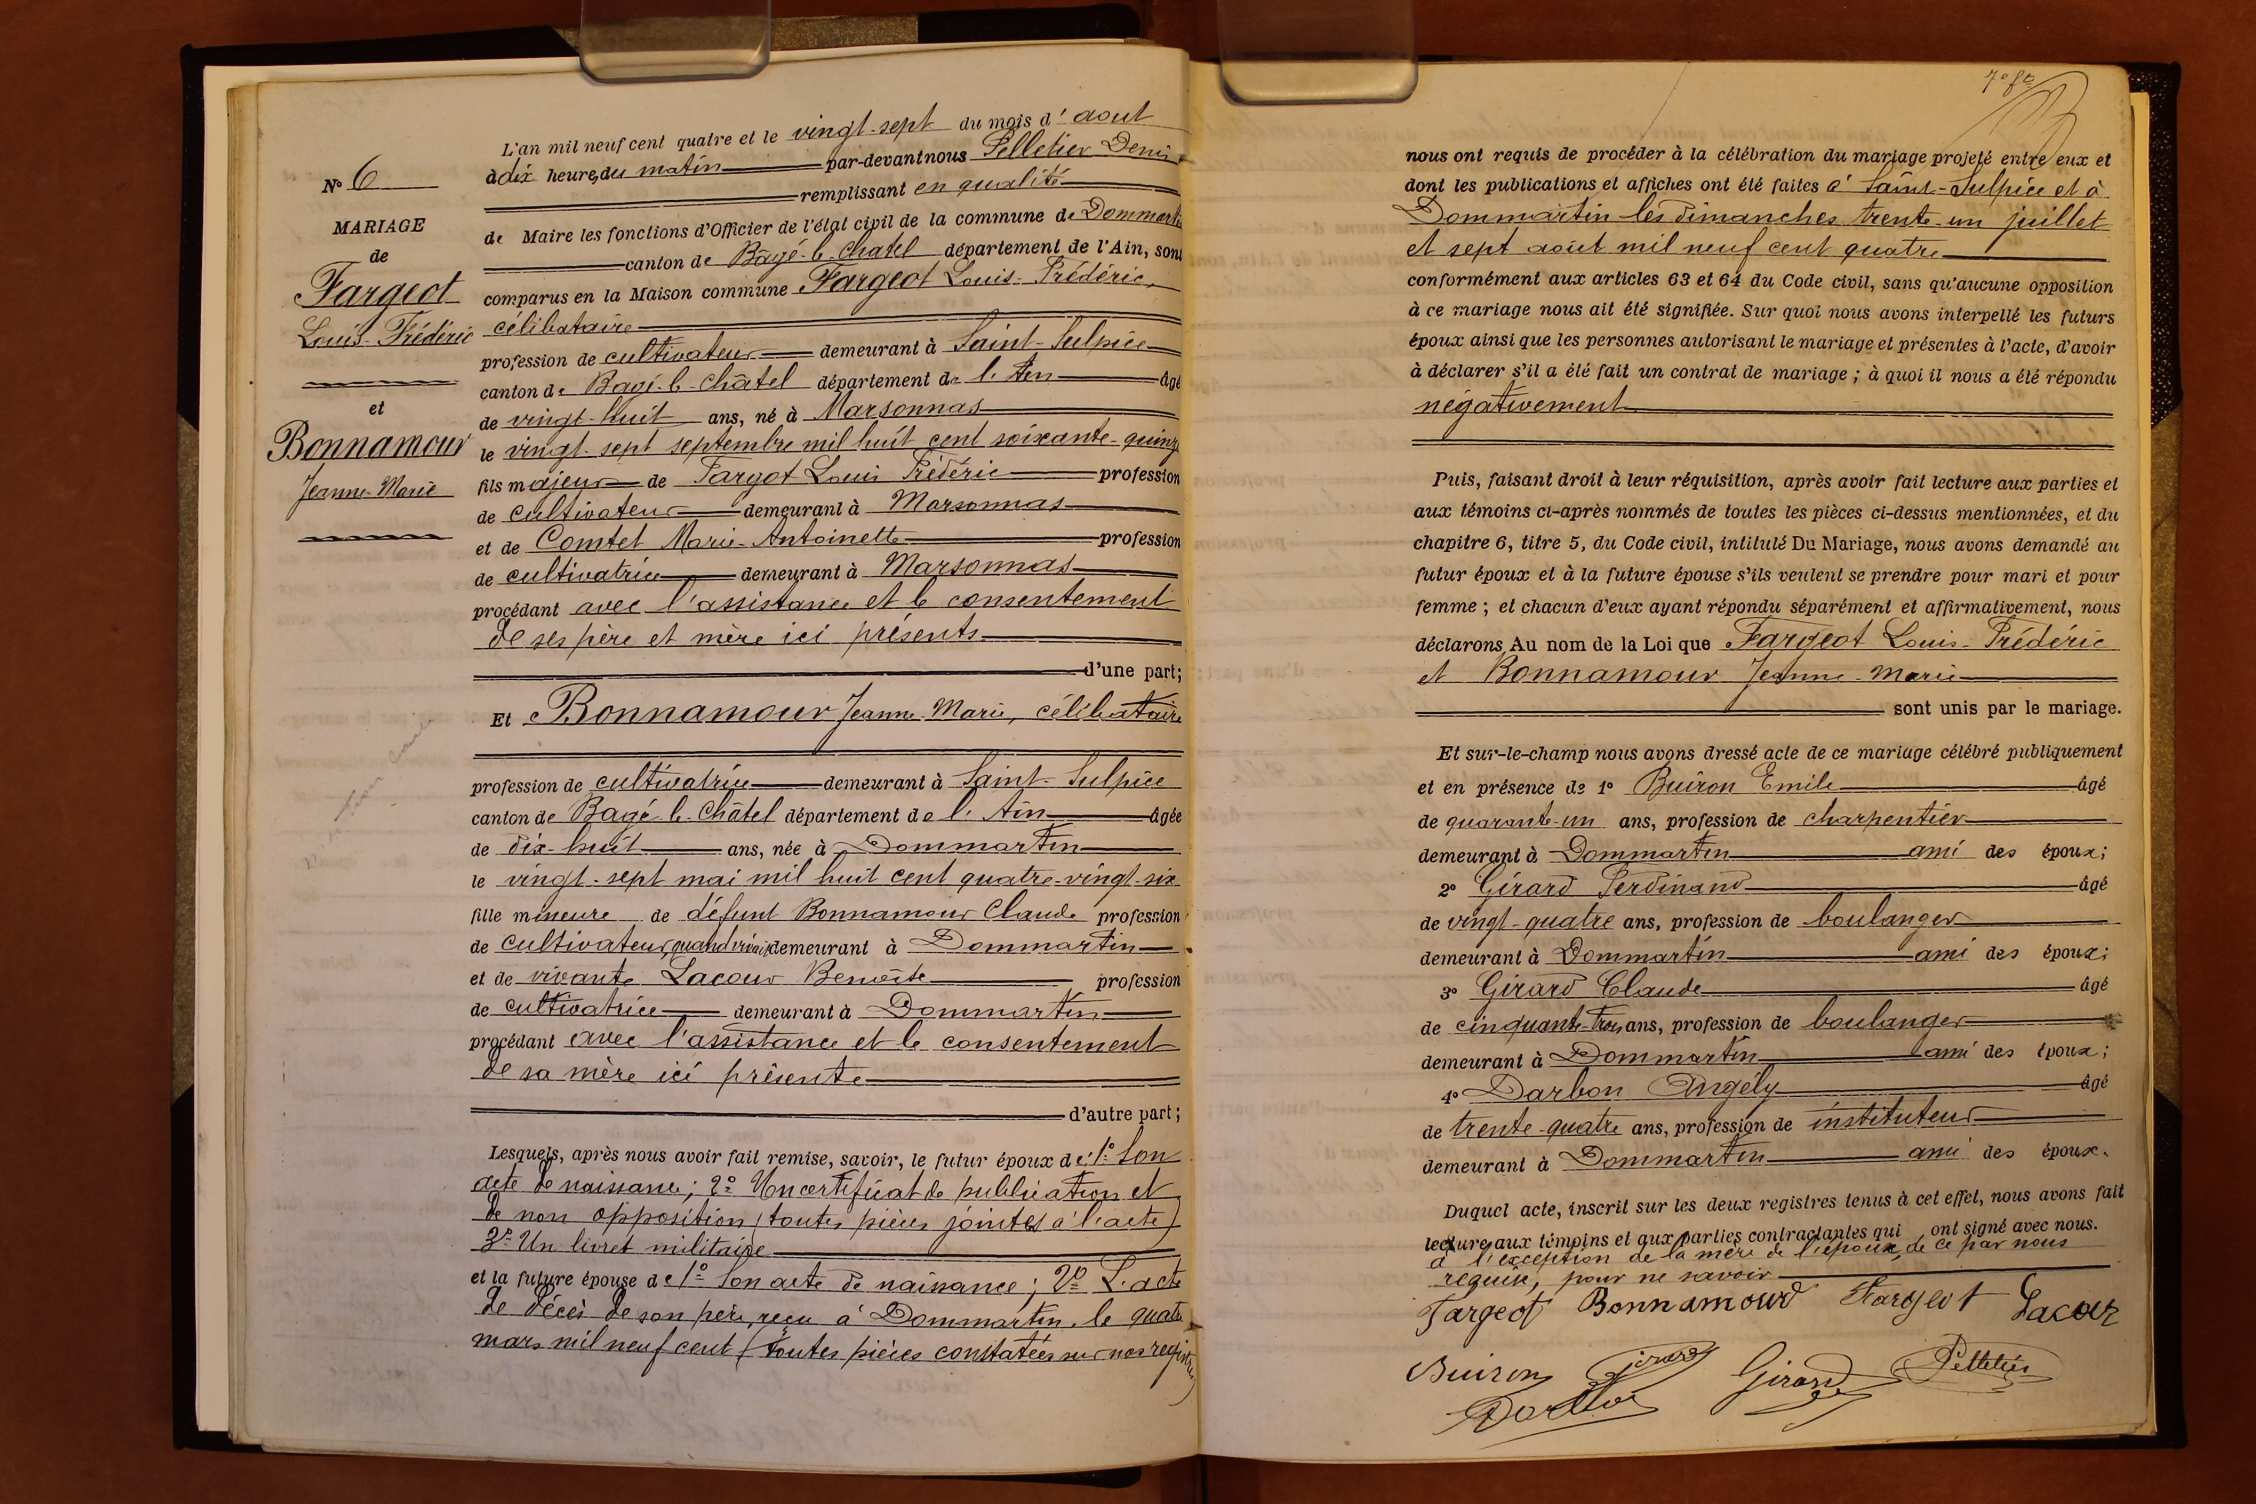 N° 6
MARIAGE
de
Fargeot
Louis-Frédéric
et
Bonnamour
Jeanne-Marie
L'an mil neuf cent quatre et le vingt-sept du mois d'aout
à dix heures du matin par-devant nous Pelletier Denis
remplissant en qualité
de Maire les fonctions d'Officier de l'état civil de la commune de Dommartin
canton de Bagé-le-Chatel département de l'Ain, sont
comparus en la Maison commune Fargeot Louis-Frédéric,
célibataire
profession de cultivateur demeurant à Saint-Sulpice
canton de Bagé-le-Châtel département de l'Ain âgé
de vingt-huit ans, né à Marsonnas
le vingt-sept septembre mil huit cent soixante-quinze
fils majeur de Fargot Louis Frédéric profession
de cultivateur demeurant à Marsonnas
et de Comtet Marie-Antoinette profession
de cultivatrice demeurant à Marsonnas
procédant avec l'assistance et le consentement
de ses père et mère ici présents
d'une part;
Et Bonnamour Jeanne-Marie, célibataire
profession de cultivatrice demeurant à Saint-Sulpice
canton de Bagé-le-Châtel département de l'Ain âgée
de dix-huit ans, née à Dommartin
le vingt-sept mai mil huit cent quatre-vingt-six
fille mineure de défunt Bonnamour Claude profession
de cultivateur, quand vivait demeurant à Dommartin
et de vivante Lacour Benoîte profession
de cultivatrice demeurant à Dommartin
procédant avec l'assistance et le consentement
de sa mère ici présente
d'autre part;
Lesquels, après nous avoir fait remise, savoir, le futur époux de: 1° Son
acte de naissance; 2° Un certificat de publication et
de non opposition (toutes pièces jointes à l'acte)
3° Un livret militaire
et la future épouse de 1° Son acte de naissance; 2° L'acte
de décès de son père, reçu à Dommartin, le quatre
mars mil neuf cent (toutes pièces constatées sur nos registres)
nous ont requis de procéder à la célébration du mariage projeté entre eux et
dont les publications et affiches ont été faites à Saint-Sulpice et à
Dommartin les dimanches trente-un juillet
et sept août mil neuf cent quatre
conformément aux articles 63 et 64 du Code civil, sans qu'aucune opposition
à ce mariage nous ait été signifiée. Sur quoi nous avons interpellé les futurs
époux ainsi que les personnes autorisant le mariage et présentes à l'acte, d'avoir
à déclarer s'il a été fait un contrat de mariage; à quoi il nous a été répondu
négativement
Puis, faisant droit à leur réquisition, après avoir fait lecture aux parties et
aux témoins ci-après nommés de toutes les pièces ci-dessus mentionnées, et du
chapitre 6, titre 5, du Code civil, intitulé Du Mariage, nous avons demandé au
futur époux et à la future épouse s'ils veulent se prendre pour mari et pour
femme; et chacun d'eux ayant répondu séparément et affirmativement, nous
déclarons Au nom de la Loi que Fargeot Louis-Frédéric
et Bonnamour Jeanne-Marie
sont unis par le mariage.
Et sur-le-champ nous avons dressé acte de ce mariage célébré publiquement
et en présence de 1° Buiron Emile âgé
de quarante-un ans, profession de charpentier
demeurant à Dommartin ami des époux;
2° Girard Ferdinand âgé
de vingt-quatre ans, profession de boulanger
demeurant à Dommartin ami des époux;
3° Girard Claude âgé
de cinquante-trois ans, profession de boulanger
demeurant à Dommartin ami des époux;
4° Darbon Angély âgé
de trente-quatre ans, profession de instituteur
demeurant à Dommartin ami des époux.
Duquel acte, inscrit sur les deux registres tenus à cet effet, nous avons fait
lecture aux témoins et aux parties contractantes qui ont signé avec nous.
à l'exception de la mère de l'époux, de ce par nous
requise, pour ne savoir
Fargeot Bonnamour Fargeot Lacour
Buiron Girard Girard Pelletier
Darbon